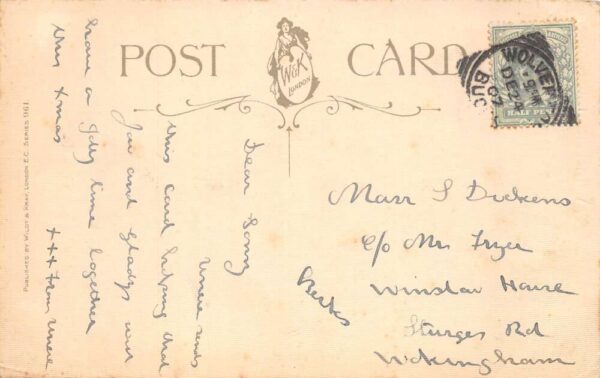 POST CARD
W&K
LONDON
WOLVER
DE 24
07
BUC
HALF PENNY
PUBLISHED BY WILDT & KRAY, LONDON E.C. SERIES 961.
Dear Sonny
Unnie sends
this card hoping that
you and Gladys will
have a jolly time together
this Xmas
+++ from Unnie
Masr S Dickens
c/o Mr Fryer
Winslow House
Sturges Rd
Wokingham
Berks